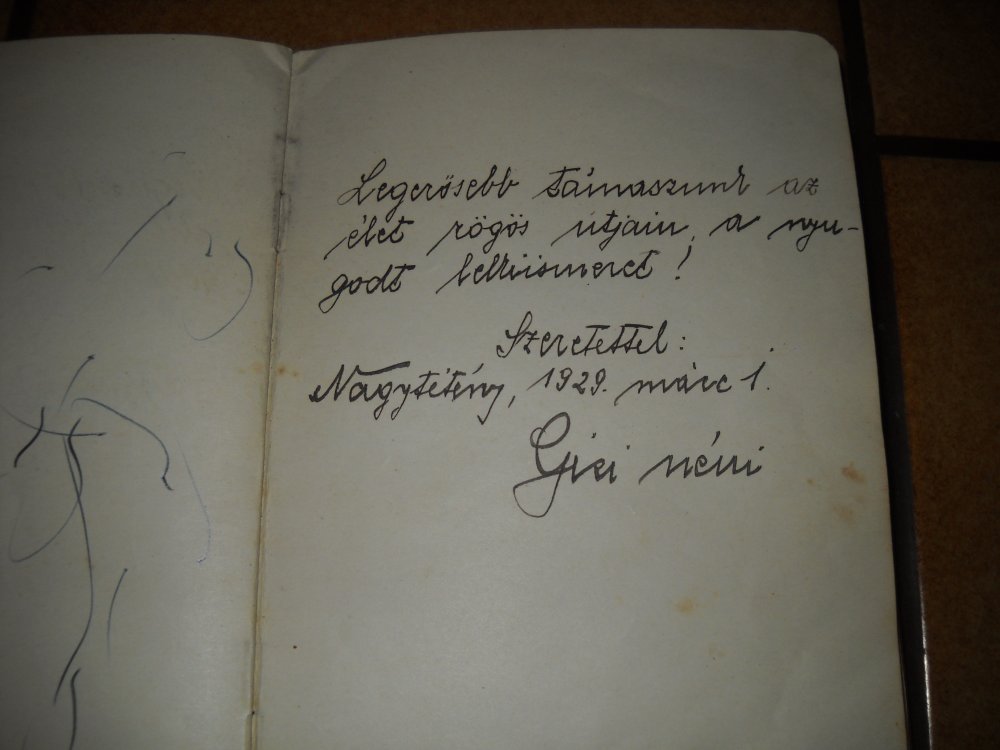 Legerősebb támaszunk az
élet rögös útjain, a nyu-
godt lelkiismeret!
Szeretettel:
Nagytétény, 1929. márc 1.
Gizi néni